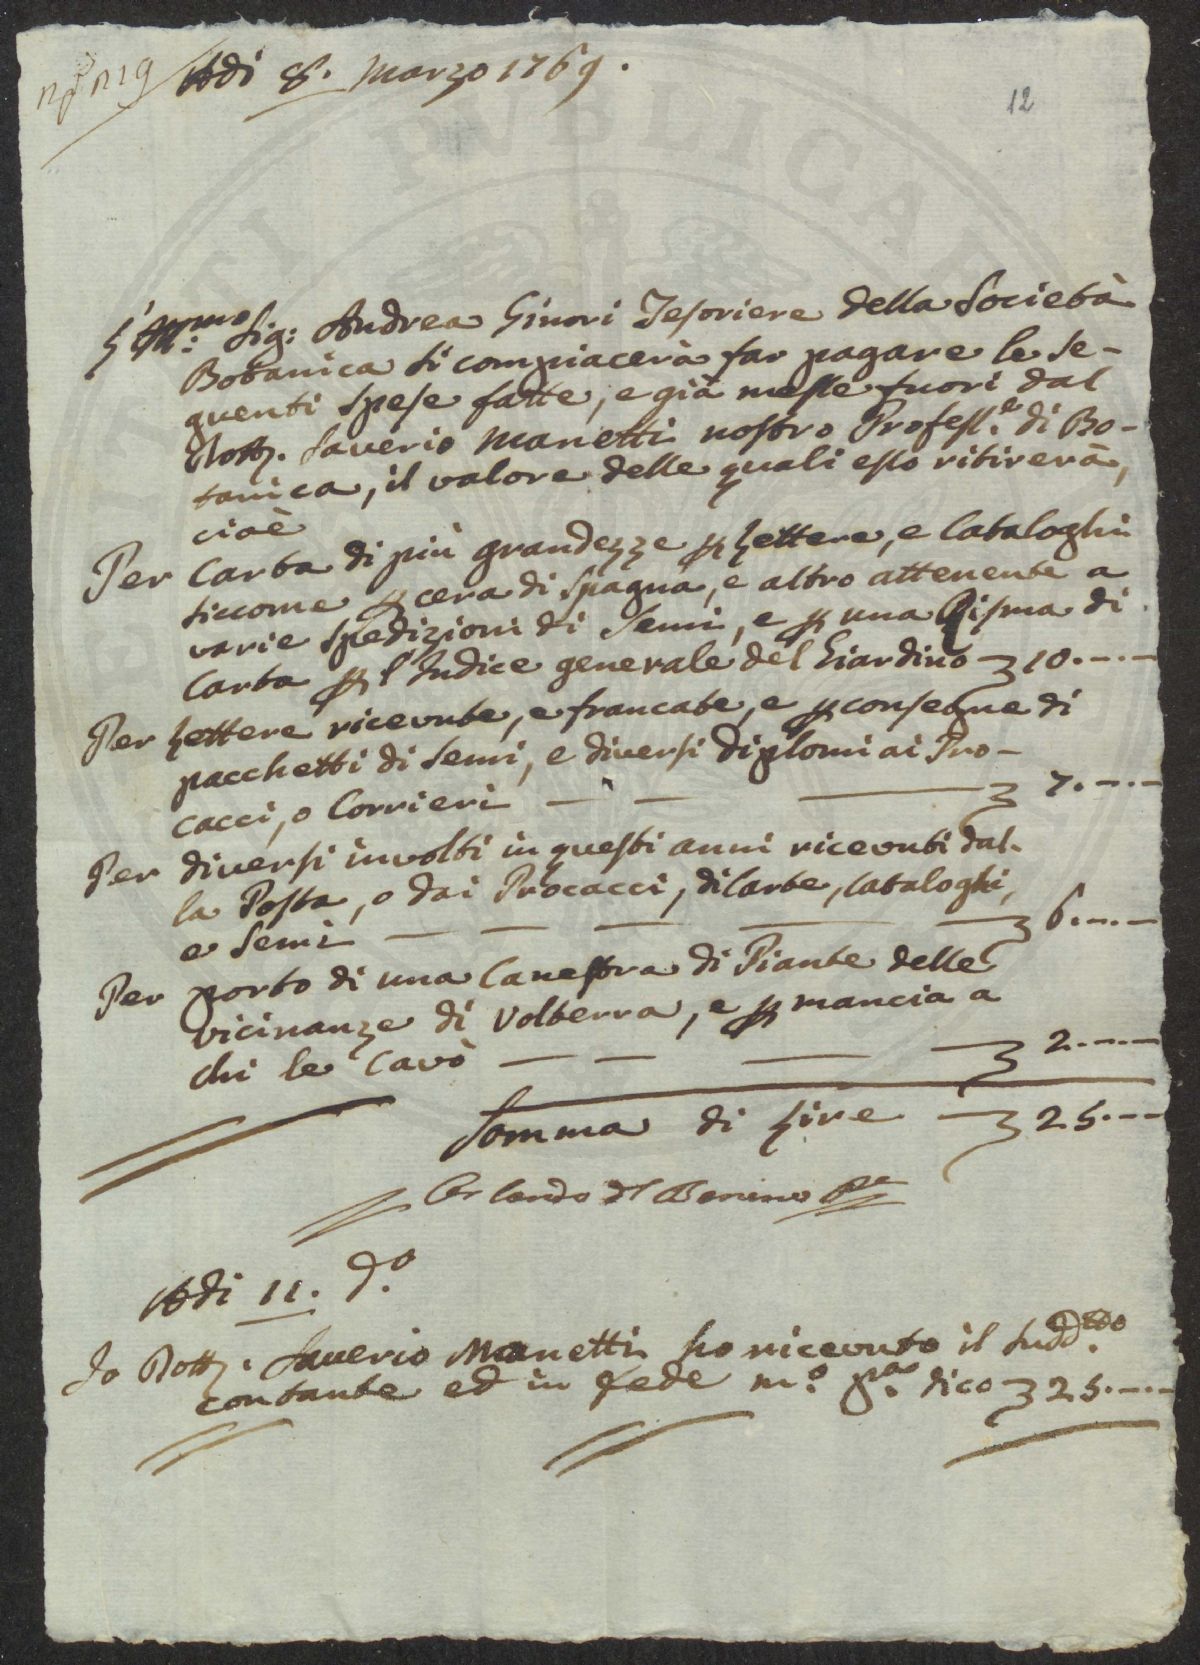 Adi 8. Marzo 1769.
12
L'Ill.mo Sig: Andrea Ginori Tesoriere della Società
Botanica si compiacerà far pagare le se-
guenti spese fatte, e già messe fuori dal
Dott. Saverio Manetti nostro Profess.e di Bo-
tanica, il valore delle quali esso ritirerà,
cioè
Per Carta di più grandezze p Lettere, e Cataloghi
siccome p cera di Spagna, e altro attenente a
varie spedizioni di Semi, e p una Risma di
Carta p l'Indice generale del Giardino 10.—.—
Per Lettere ricevute, e francate, e p consegne di
pacchetti di Semi, e diversi diplomi ai Pro-
cacci, o Corrieri — — — 7.—.—
Per diversi involti in questi anni ricevuti dal-
la Posta, o dai Procacci, di Carte, Cataloghi,
e Semi — — — — — 6.—.—
Per porto di una Canestra di Piante delle
vicinanze di Volterra, e p mancia a
chi le cavò — — — — 2.—.—
Somma di Lire — 25.—.—
Orlando del Benino
Adi 11. d.o
Io Dott. Saverio Manetti ho ricevuto il sudd.tto
contante ed in fede m.o p.a dico 25.—.—